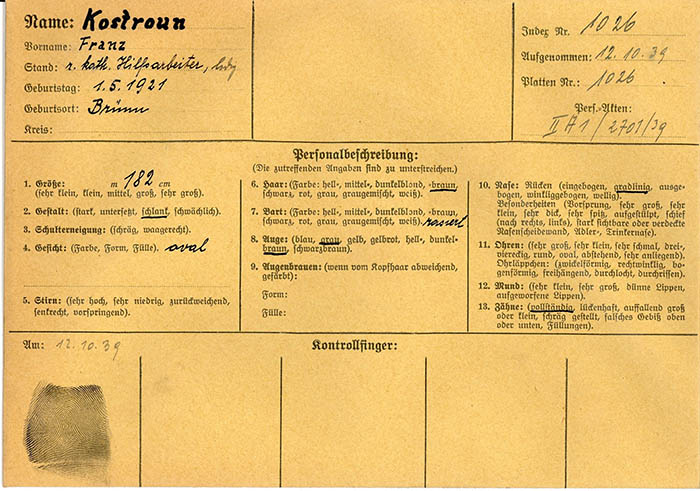 Name: Kostroun
Vorname: Franz
Stand: r. kath. Hilfsarbeiter, ledig
Geburtstag: 1. 5. 1921
Geburtsort: Brünn
Kreis:
Index Nr. 1026
Aufgenommen: 12. 10. 39
Platten Nr.: 1026
Pers.-Akten:
II A 1 / 2701/39
Personalbeschreibung:
(Die zutreffenden Angaben sind zu unterstreichen.)
1. Größe: m 182 cm
(sehr klein, klein, mittel, groß, sehr groß).
2. Gestalt: (stark, untersetzt, schlank, schwächlich).
3. Schulterneigung: (schräg, waagerecht).
4. Gesicht: (Farbe, Form, Fülle). oval
5. Stirn: (sehr hoch, sehr niedrig, zurückweichend,
senkrecht, vorspringend).
6. Haar: (Farbe: hell-, mittel-, dunkelblond, -braun,
schwarz, rot, grau, graugemischt, weiß).
7. Bart: (Farbe: hell-, mittel-, dunkelblond, -braun,
schwarz, rot, grau, graugemischt, weiß). rasiert
8. Auge: (blau, grau, gelb, gelbrot, hell-, dunkel-
braun, schwarzbraun).
9. Augenbrauen: (wenn vom Kopfhaar abweichend,
gefärbt):
Form:
Fülle:
10. Nase: Rücken (eingebogen, gradlinig, ausge-
bogen, winkliggebogen, wellig).
Besonderheiten (Vorsprung, sehr groß, sehr
klein, sehr dick, sehr spitz, aufgestülpt, schief
(nach rechts, links), stark sichtbare oder verdeckte
Nasenscheidewand, Adler-, Trinkernase).
11. Ohren: (sehr groß, sehr klein, sehr schmal, drei-,
viereckig, rund, oval, abstehend, sehr anliegend).
Ohrläppchen: (zwickelförmig, rechtwinklig, bo-
genförmig, freihängend, durchlocht, durchrissen).
12. Mund: (sehr klein, sehr groß, dünne Lippen,
aufgeworfene Lippen).
13. Zähne: (vollständig, lückenhaft, auffallend groß
oder klein, schräg gestellt, falsches Gebiß oben
oder unten, Füllungen).
Am: 12. 10. 39
Kontrollfinger: